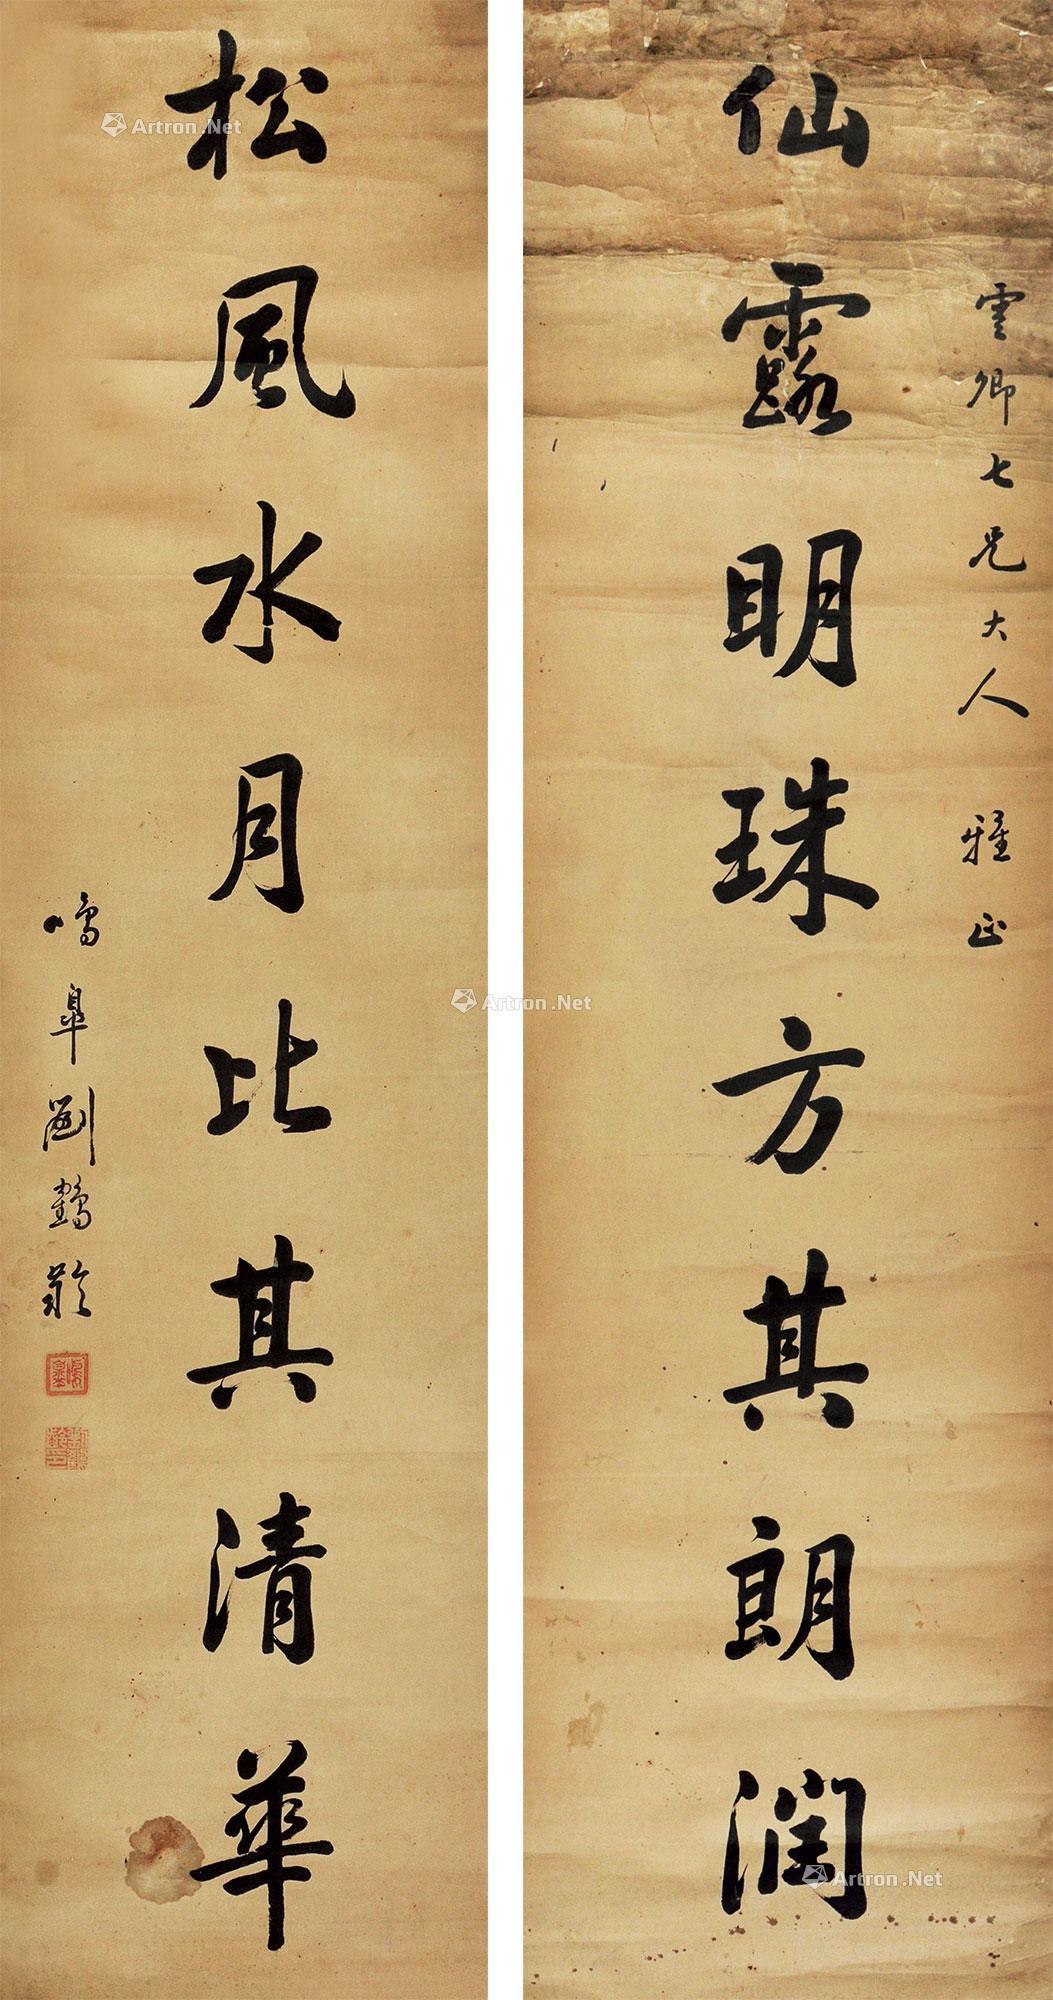 雲卿七兄大人 雅正
仙露明珠方其朗潤
松風水月比其清華
鳴皋劉鶴齡
Artron.Net
Artron.Net
Artron.Net